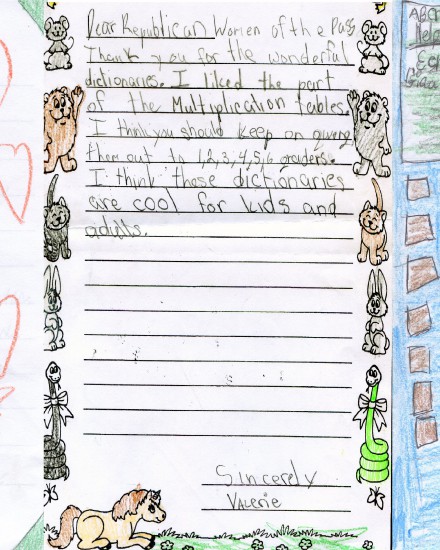 Dear Republican Women of the Pass
Thank you for the wonderful
dictionaries. I liked the part
of the Multiplication tables.
I think you should keep on giving
them out to 1,2,3,4,5,6 graders.
I think these dictionaries
are cool for kids and
adults.
Sincerely
Valerie
ABC